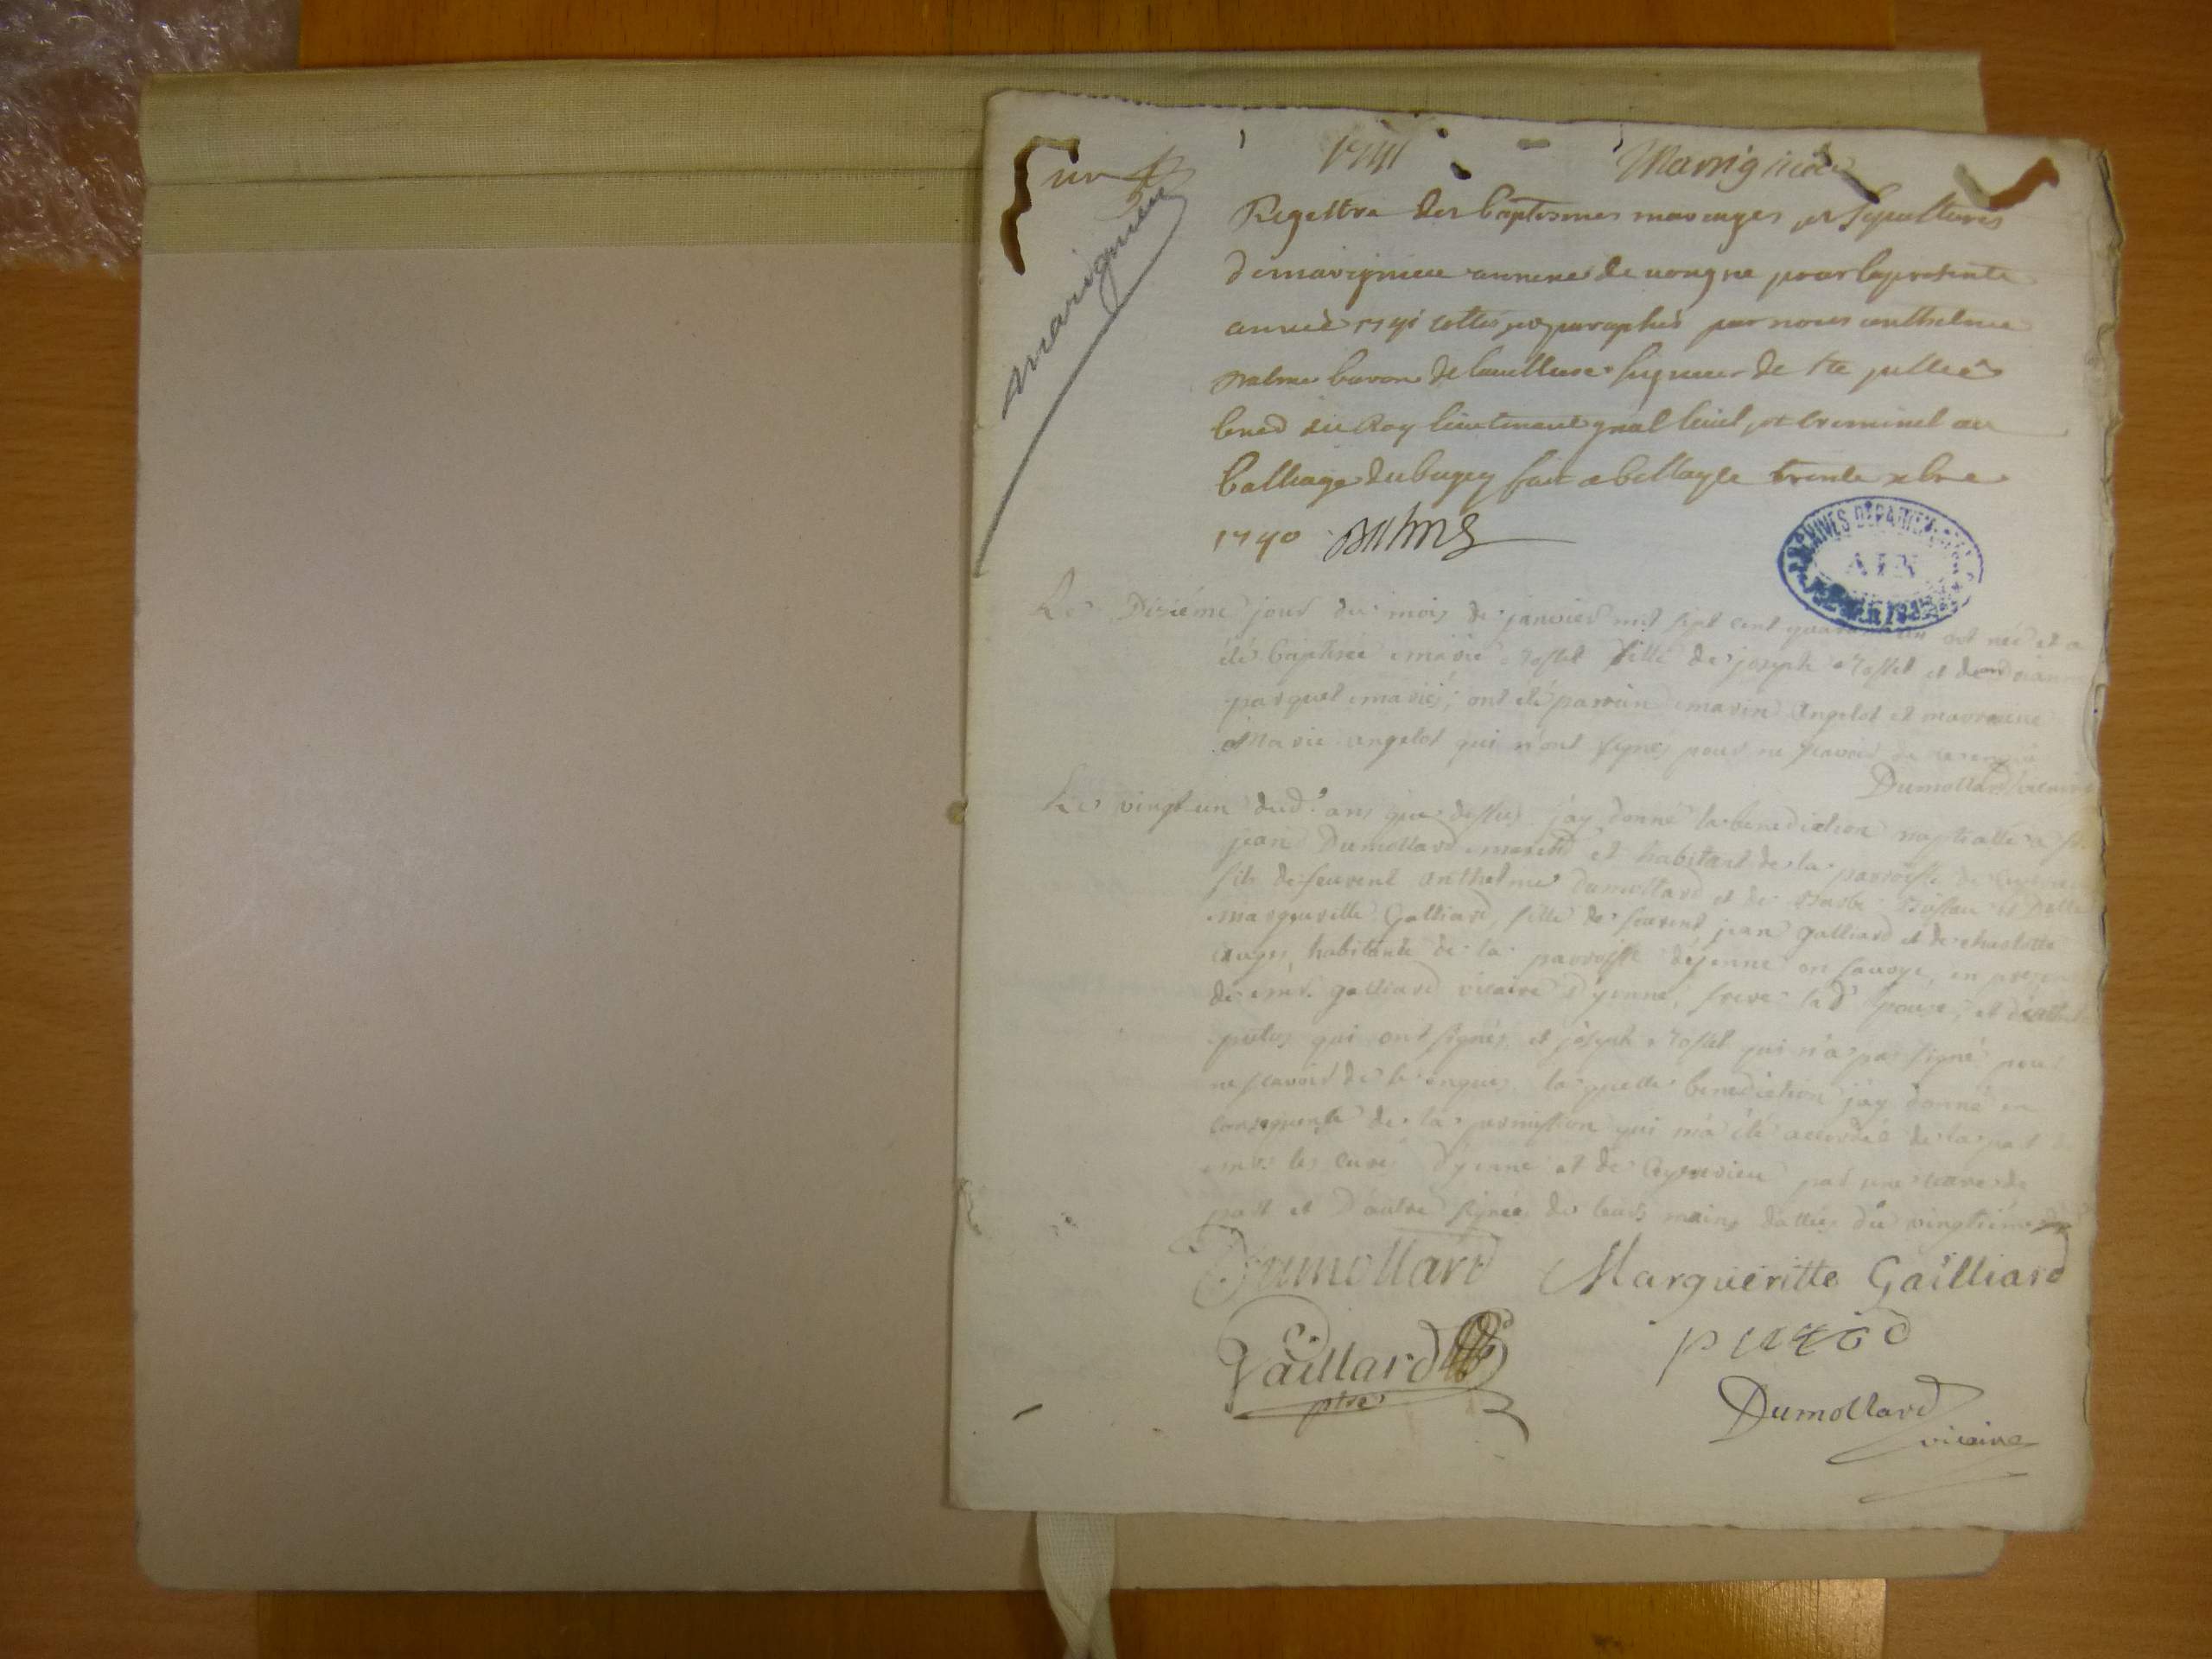 un
1741
Marignieu
marignieu
Registre des baptismes mariages et sepultures
de marignieu annexe de vongne pour la presente
année 1741 cottés et paraphés par nous anthelme
balme baron de seigneur de Ste jullie
du Roy lieutenant gnal civil et criminel au
balliage du bugey fait a bellayle trente xbre
1740 balme
ARCHIVES DÉPARTEMENTALES
AIN
Le Dixiéme jour du mois de janvier mil sept cent quarante un est née et a
été baptisée marie rosset fille de joseph rosset et
pasquet mariés; ont été parrain marin Angelot et marraine
Marie angelot qui n'ont signés pour ne scavoir de ce enquis
Dumollard vicaire
Le vingt un dud. ans que dessus jay donné la benediction nuptialle a
jean Dumollard march.d et habitant de la parroisse de
fils de feu vent anthelme dumollard et de et Delle
margueritte Galliard, fille de feu vent jean galliard et de charlotte
habitante de la parroisse déjenne en savoye, en presence
de mr. galliard vicaire d'yenne, frere lad. épouse, et
qui ont signés, et joseph rosset qui n'a pas signé pour
ne scavoir de ce enquis, la quelle benediction jay donné en
consequence de la permission qui m'a été accordée de la part de
mrs. les curés d'yenne et de Ceyzerieu par une de
part et d'autre signée de leurs mains dattées du vingtiéme
Dumollard Margueritte Gailliard
Gaillard ptre
Dumollard
vicaire